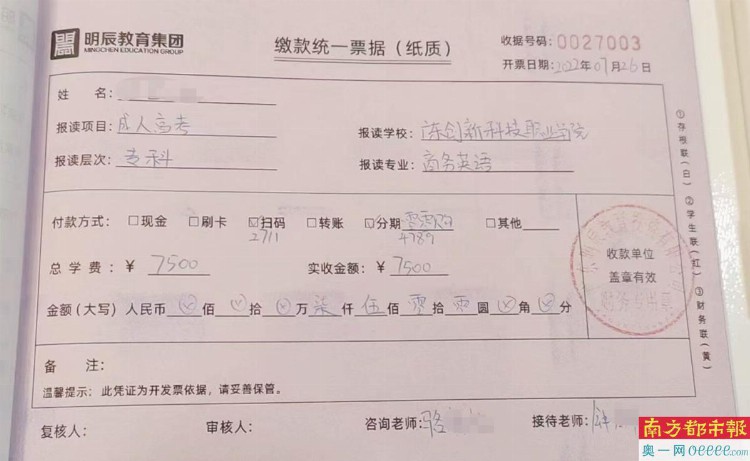 明辰教育集团
MINGCHEN EDUCATION GROUP
缴款统一票据（纸质）
收据号码：0027003
开票日期：2022年07月26日
姓 名：
报读项目：成人高考
报读学校：东创新科技职业学院
报读层次：专科
报读专业：商务英语
付款方式：□现金 □刷卡 ☑扫码 □转账 ☑分期 □其他
2711 4789
总 学 费：￥ 7500 实收金额：￥ 7500
收款单位
盖章有效
金额（大写）人民币 ⊗ 佰 ⊗ 拾 ⊗ 万 柒 仟 伍 佰 零 拾 零 圆 ⊗ 角 ⊗ 分
备 注：
温馨提示：此凭证为开发票依据，请妥善保管。
复核人： 审核人： 咨询老师：骆 接待老师：
①存根联（白）②学生联（红）③财务联（黄）
南方都市報
奥一网oeeee.com